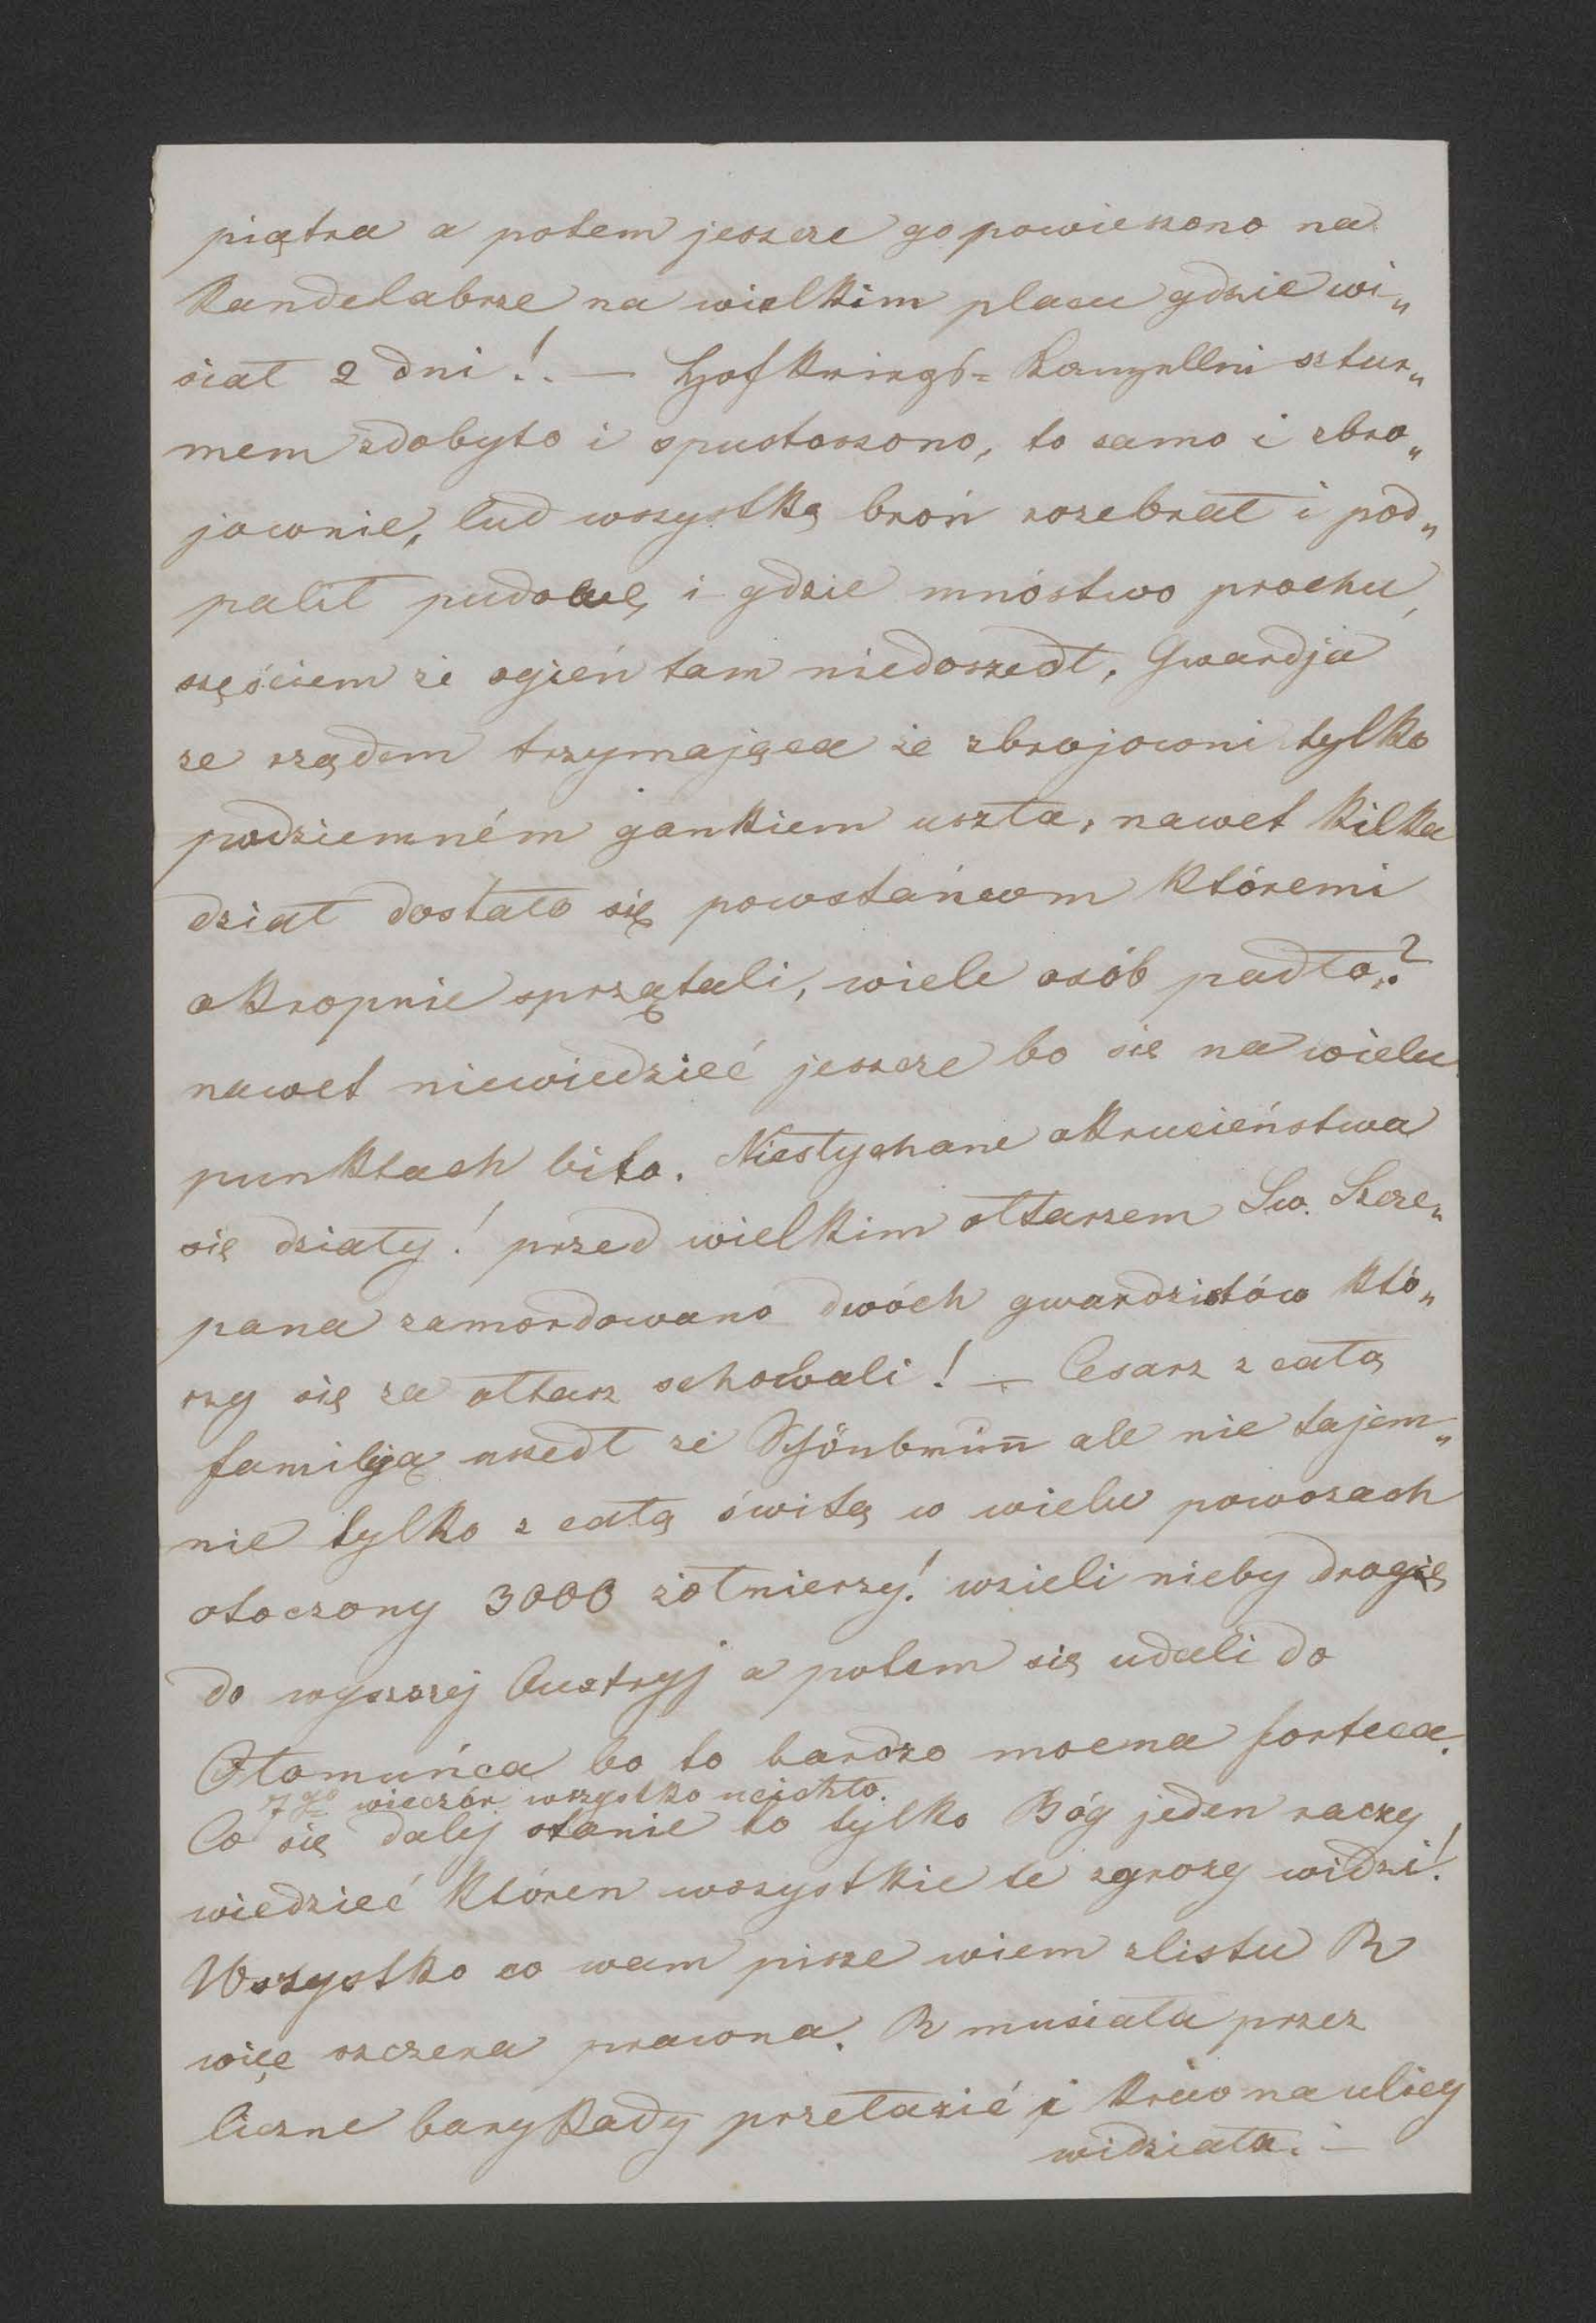 piątra a potem jeszcze go powieszono na
Kandelabrze na wielkim placu gdzie wi„
siał 2 dni!. — Hofkriegs= Kanzellni sztur„
mem zdobyto i spustoszono, to samo i zbro„
jownie, lud wszystką broń rozebrał i pod„
palił i gdzie mnóstwo prochu,
szęściem że ogień tam niedoszedł, Gwardja
ze rządem trzymająca ze zbrojowni tylko
podziemném gankiem uszła, nawet kilka
dział dostało się powstańcom któremi
okropnie sprzątali, wiele osób padło?
nawet niewiedzieć jeszcze bo się na wielu
punktach biło. Niesłychane okrucieństwa
się działy! przed wielkim ołtarzem Sw. Szcze„
pana zamordowano dwóch gwardzistów któ„
rzy się za ołtarz schowali! — Cesarz z całą
familiją uszedł ze Schönbrunn ale nie tajem„
nie tylko z całą świtą w wielu powozach
otoczony 3000 żołnierzy! wzieli nieby drogię
do wyszszej Austryj a potem się udali do
Ołomuńca bo to bardzo mocna forteca.
7go wieczór wszystko ucichło.
Co się dalej stanie to tylko Bóg jeden raczy
wiedzieć któren wszystkie te zgrozy widzi!
Wszystko co wam pisze wiem zlistu R
więc szczera prawna. R musiała przez
liczne barykady przełazić i krew na ulicy
widziała. —